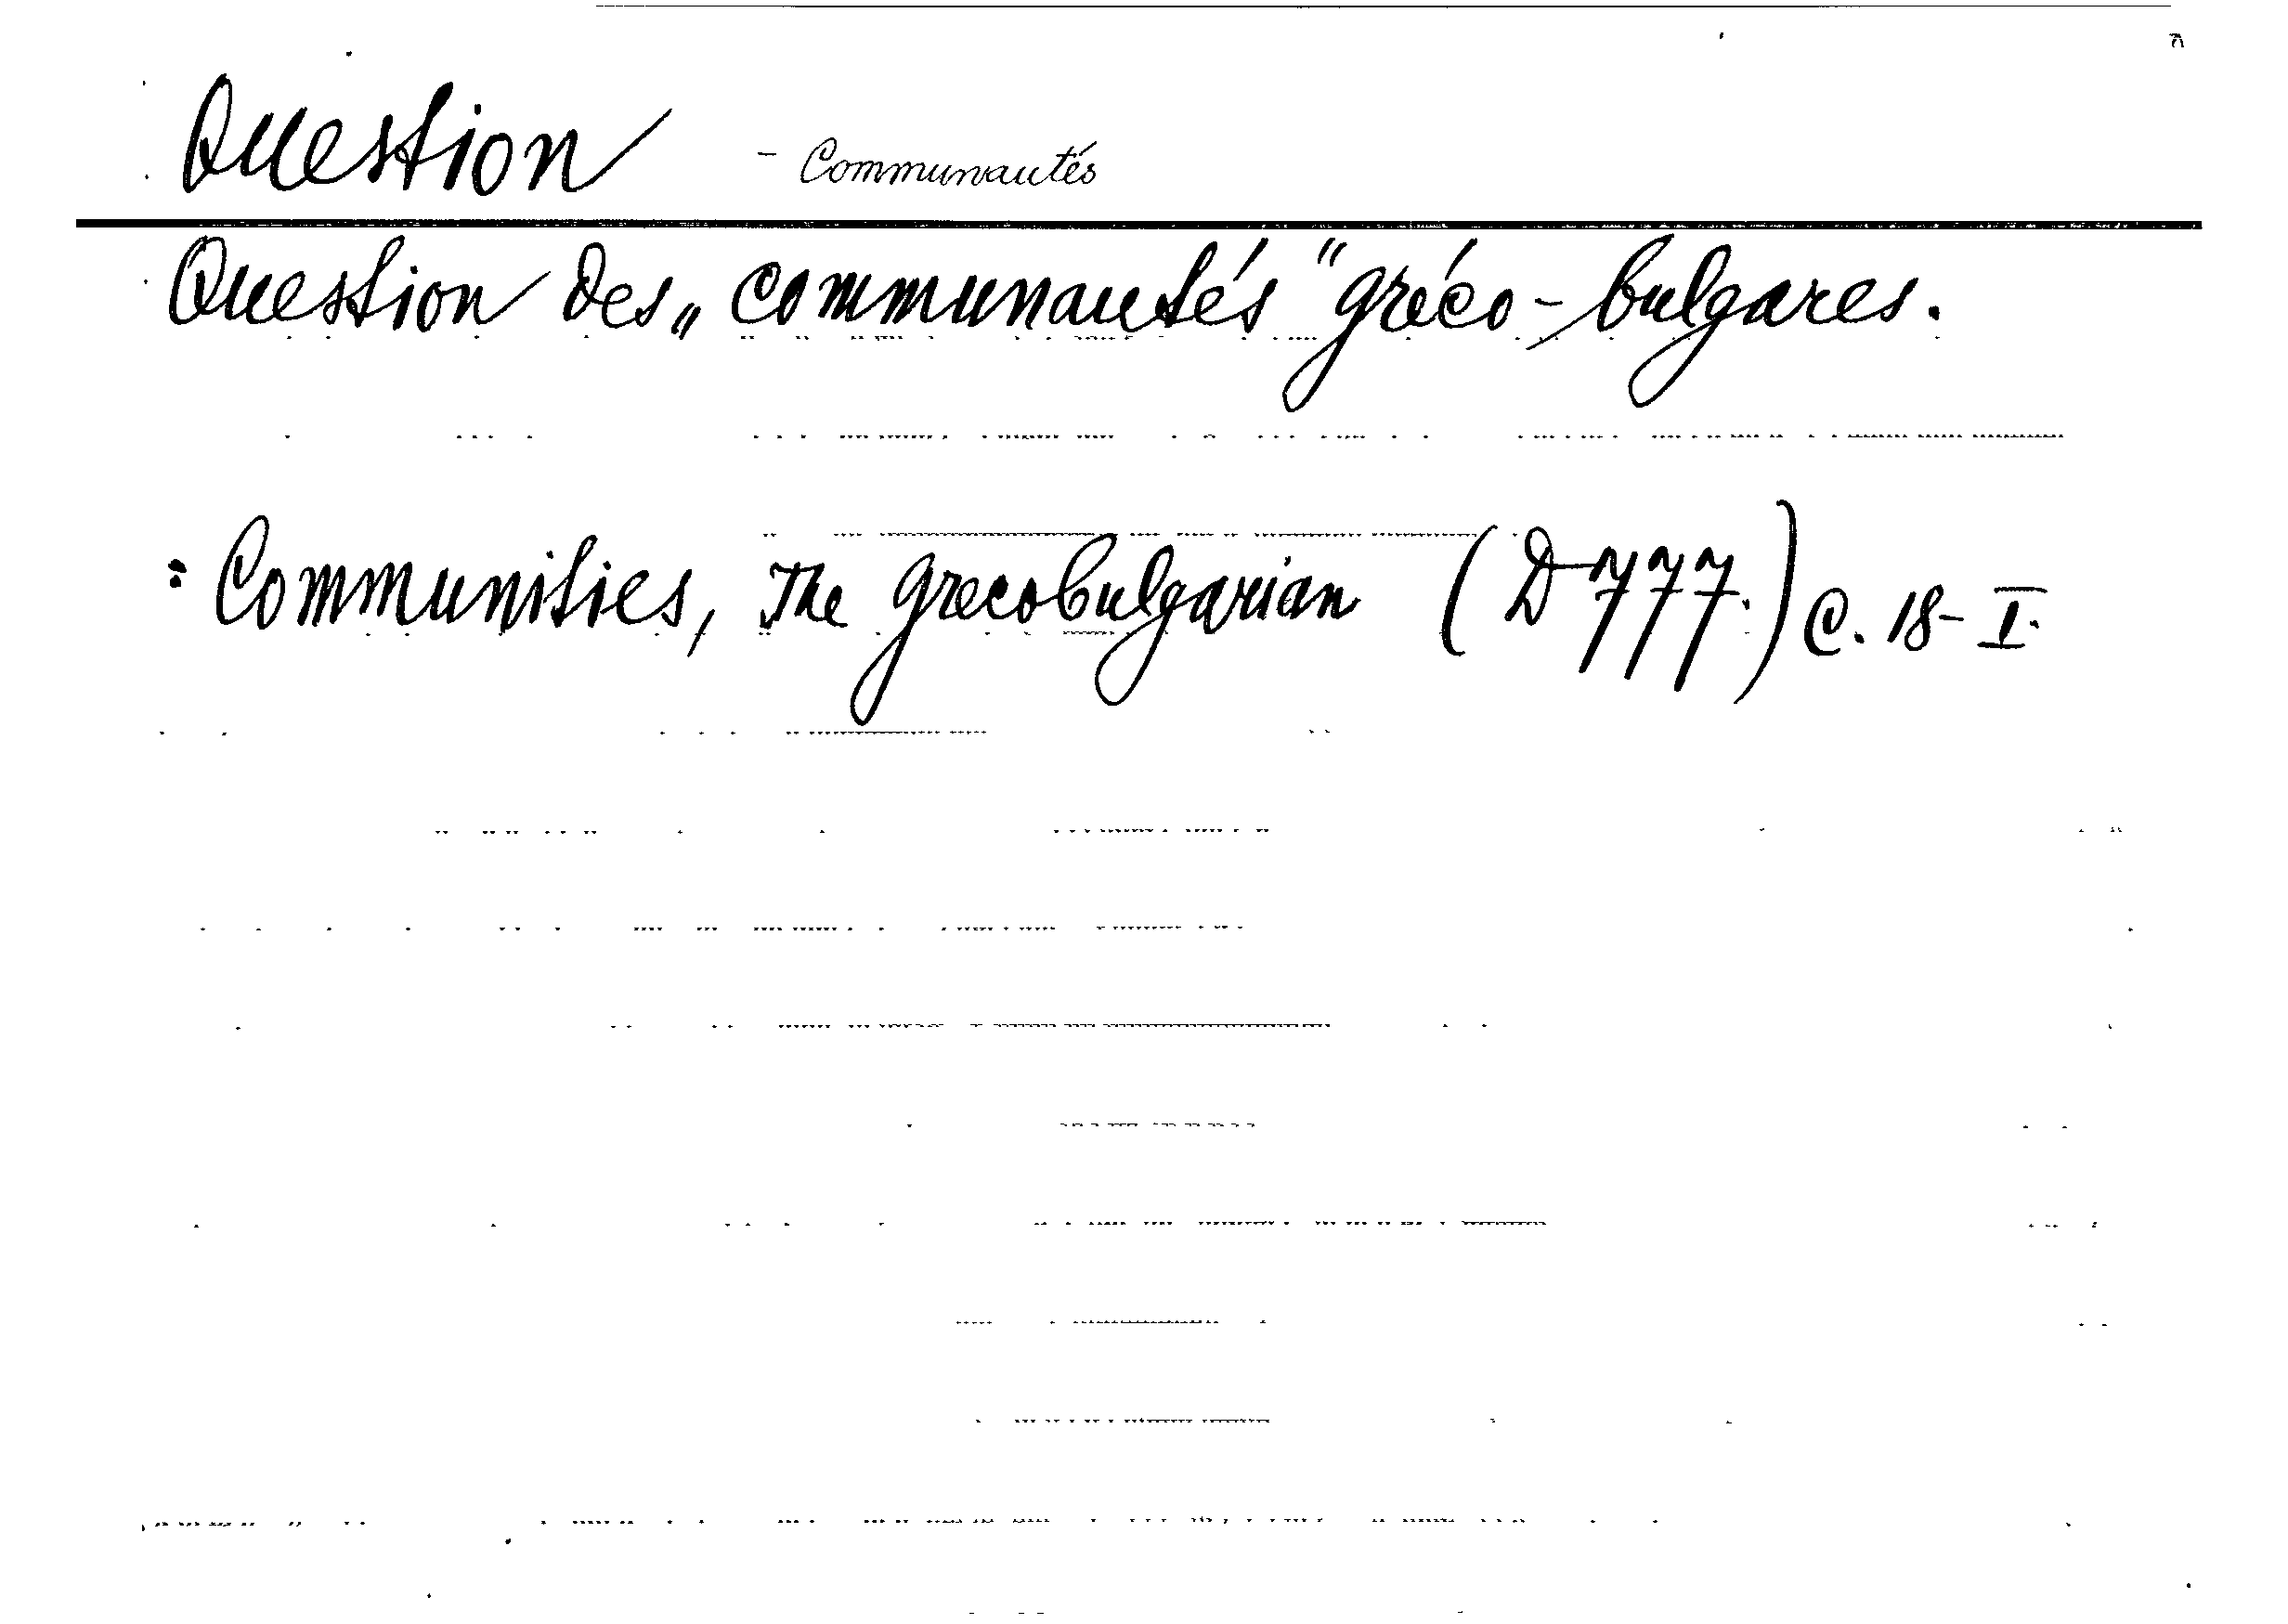 Question - Communautés
Question des „communautés" gréco-bulgares.
= Communities, The grecobulgarian (D 777.) C. 18-I.